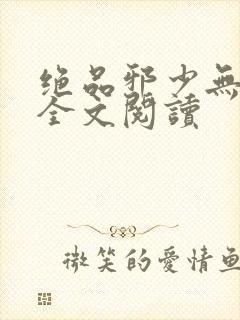 绝品邪少無
全文閱讀
微笑的愛情魚